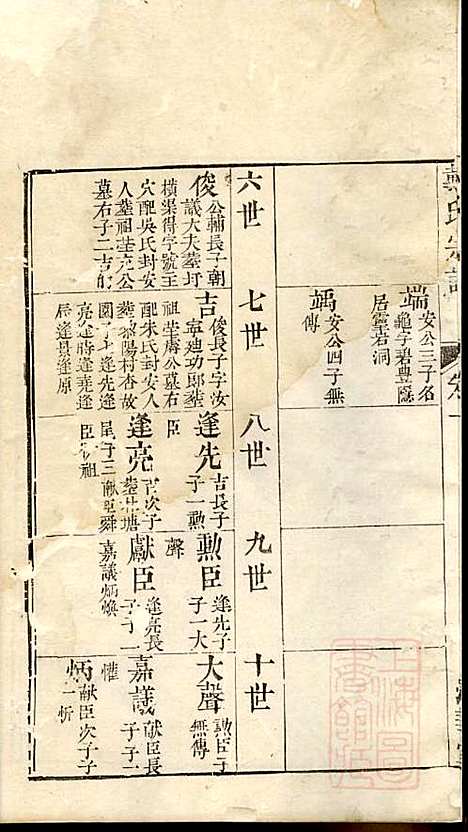 氏宗譜
卷一
端 安公三子名
龜字碧豊隱
居靈岩洞
竬 安公四子無
傳
六世
七世
八世
九世
十世
俊 公輔長子朝
議大夫葬圩
橫渠得字號王
穴配吳氏封安
人葬祖塋充公
墓右子二吉
吉 俊長子字汝
寧廸功郎葬
祖塋膚公墓右
配朱氏封安人
葬黎陽村杳故
園子 逢先逢
亮逢時逢堯逢
逢景逢原
逢先 吉長子
子一勲
臣
逢亮 吉次子
葬井塘
尾子三献臣舜
臣 祖
勲臣 逢先子
子一大
聲
獻臣 逢亮長
子子二
嘉議炳煥
大聲 勲臣子
無傳
嘉議 献臣長
子子二
懽
炳 献臣次子子
一忻
上海圖書館藏